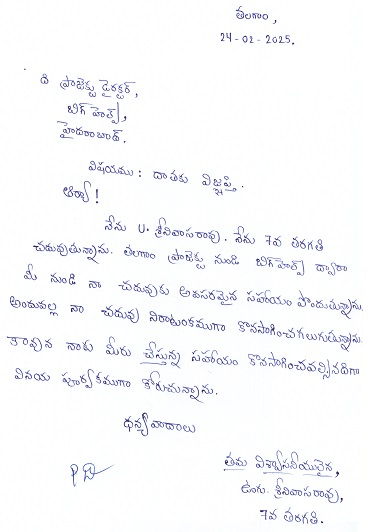 తలగాం,
24-02-2025.
ది ప్రాజెక్టు డైరక్టర్,
బిగ్ హెల్ప్,
హైదరాబాద్.
విషయము : దాతకు విజ్ఞప్తి.
ఆర్యా!
నేను U. శ్రీనివాసరావు. నేను 7వ తరగతి
చదువుతున్నాను. తలగాం ప్రాజెక్టు నుండి బిగ్‌హెల్ప్ ద్వారా
మీ నుండి నా చదువుకు అవసరమైన సహాయం పొందుతున్నాను.
అందువల్ల నా చదువు నిరాటంకముగా కొనసాగించగలుగుతున్నాను.
కావున నాకు మీరు చేస్తున్న సహాయం కొనసాగించవల్సినదిగా
వినయ పూర్వకముగా కోరుచున్నాను.
ధన్యవాదాలు
తమ విశ్వాసనీయులైన,
ఉంగ. శ్రీనివాసరావు,
7వ తరగతి.